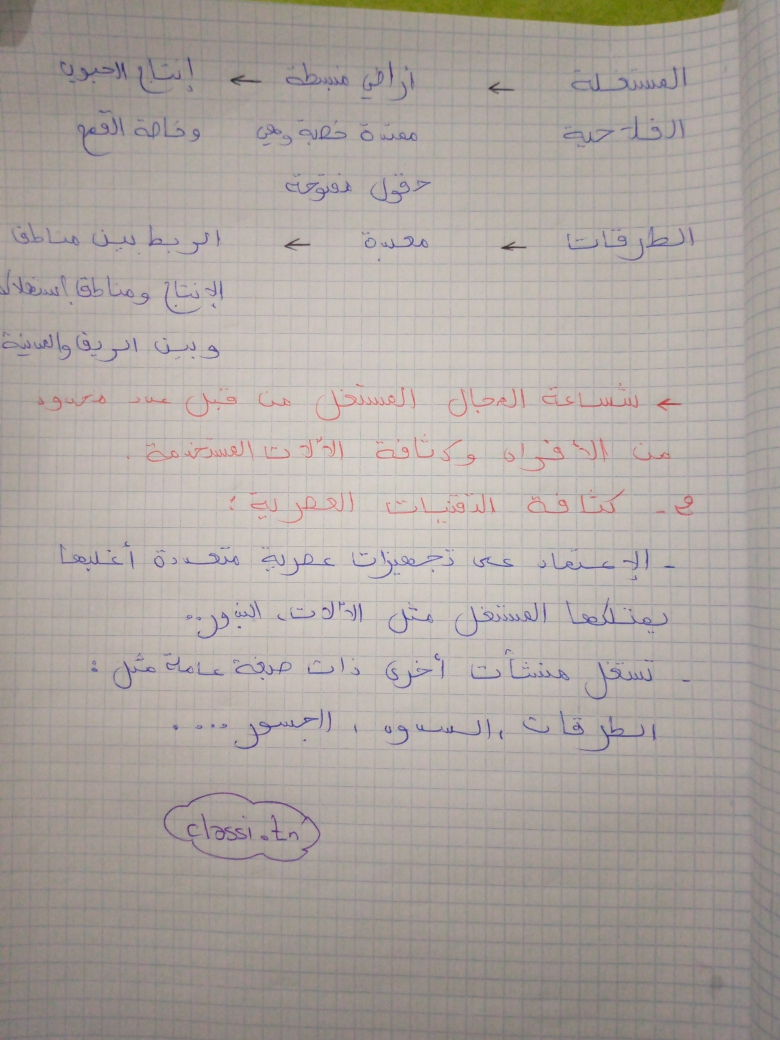 المستغلة ← أراضي منبسطة ← إنتاج الحبوب
الفلاحية ممتدة خصبة وهي وخاصة القمح
حقول مفتوحة
الطرقات ← معبدة ← الربط بين مناطق
الإنتاج ومناطق استغلاله
وبين الريف والمدينة
← شساعة المجال المستغل من قبل عدد محدود
من الأفراد وكثافة الآلات المستخدمة.
2- كثافة التقنيات العصرية:
- الإعتماد على تجهيزات عصرية متعددة أغلبها
يمتلكها المستغل مثل الآلات، البذور..
- تستغل منشآت أخرى ذات صبغة عامة مثل:
الطرقات، السدود، الجسور....
classi.tn